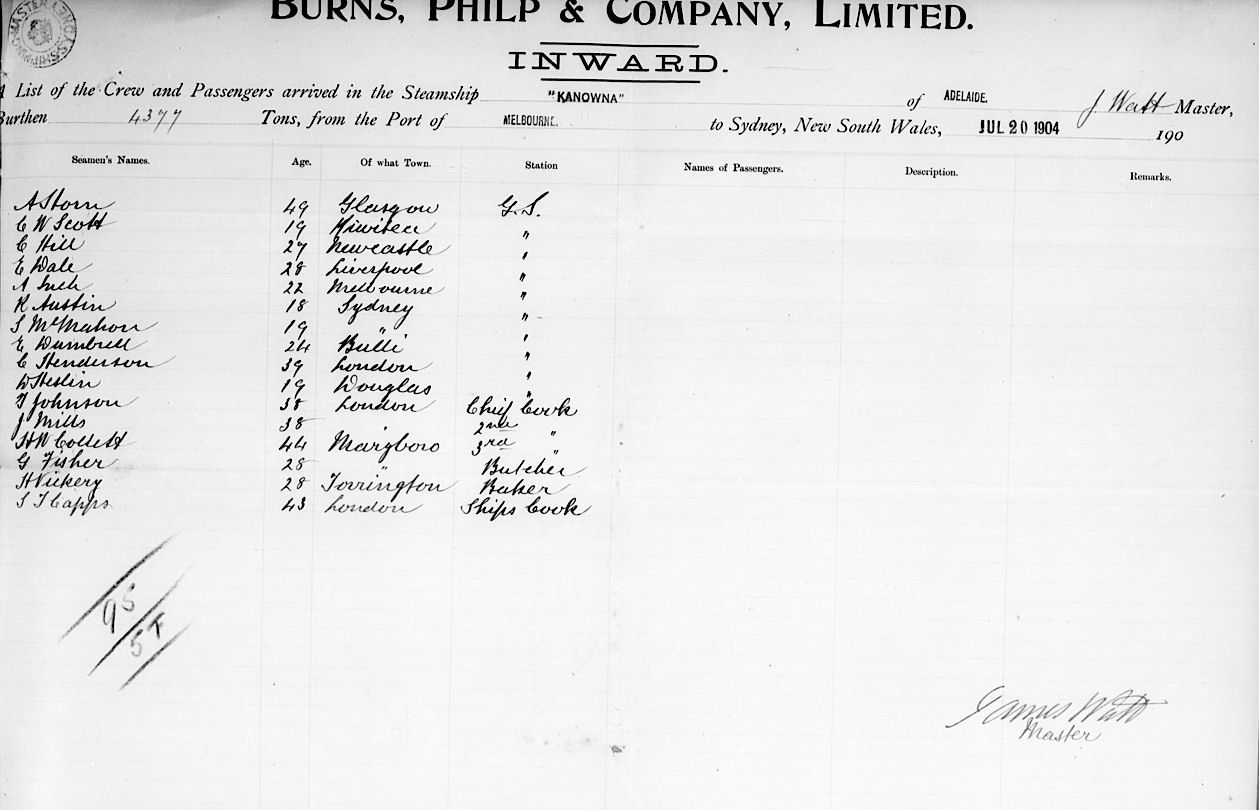 BURNS, PHILP & COMPANY, LIMITED.
INWARD.
List of the Crew and Passengers arrived in the Steamship "KANOWNA" of ADELAIDE. J. Watt Master,
Burthen 4377 Tons, from the Port of MELBOURNE. to Sydney, New South Wales, JUL 20 1904 190
Seamen's Names. Age. Of what Town. Station Names of Passengers. Description. Remarks.
A Storn 49 Glasgow G.S.
C W Scott 19 "
C Hill 27 Newcastle "
E Dale 28 Liverpool "
A 22 Melbourne "
R Austin 18 Sydney "
S McMahon 19 " "
E Dumbrell 24 Bulli "
C Henderson 39 London "
W Heslin 19 Douglas "
T Johnson 38 London Chief Cook
J Mills 38 2nd "
H W Collett 44 Maryboro 3rd "
G Fisher 28 " Butcher
H Vickery 28 Torrington Baker
S T Capps 43 London Ships Cook
95/57
James Watt
Master